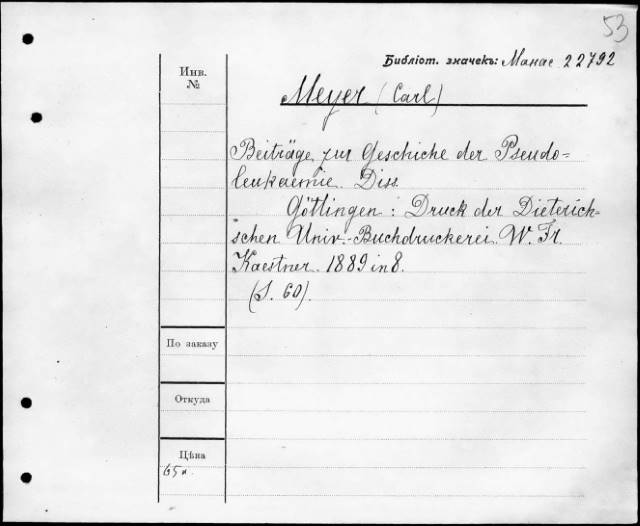 53
Библіот. значекъ: Манас 22792
Инв.
№
Meyer (Carl)
Beiträge zur Geschiche der Pseudo=
leukaemie. Diss.
Göttingen: Druck der Dieterich-
schen Univ.-Buchdruckerei. W. Fr.
Kaestner. 1889 in 8.
(S. 60).
По заказу
Откуда
Цѣна